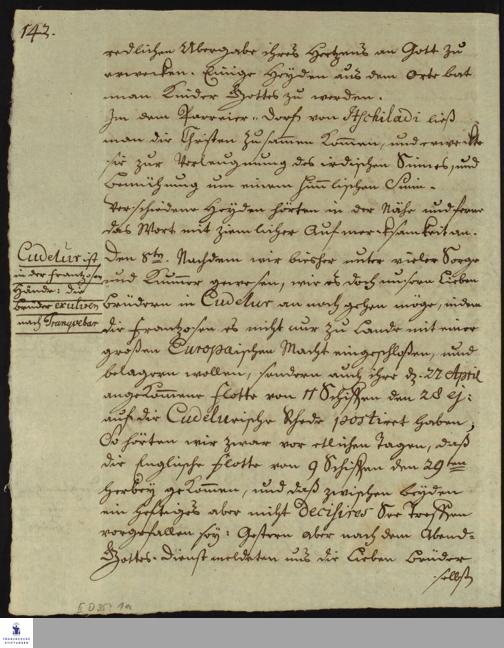 142.
redlichen Übergabe ihres Hertzens an Gott zu
erwecken. Einige Heyden aus dem Orte bat
man Kinder Gottes zu werden.
In dem Parreier-Dorf von Itschiladi ließ
man die Christen zusammen kommen, und erweckte
sie zur Verleugnung des irdischen Sinnes, und
Bemühung um einem himmlischen Sinn.
Verschiedene Heyden hörten in der Nähe und ferne
das Wort mit ziemlicher Aufmercksamkeit an.
Cudelur ist
in der Frantzosen
Hände: die
brüder exuliren
nach Tranqvebar
Den 8ten. Nachdem wir bisher unter vieler Sorge
und Kummer gewesen, wie es doch unsern Lieben
Brüdern in Cudelur an noch gehen möge, indem
die Frantzosen es nicht nur zu Lande mit einer
großen Europaischen Macht eingeschloßen, und
belagern wollen, sondern auch ihre d. 27 April
angekommene Flotte von 11 Schiffen den 28 ej:
auf die Cudelurische Rhede postiret haben;
So hörten wir zwar vor etlichen Tagen, daß
die Englische Flotte von 9 Schiffen den 29ten
herbey gekommen, und daß zwischen beyden
ein heftiges aber nicht decisives See Treffen
vorgefallen sey: Gestern aber nach dem Abend-
Gottes-dienst meldeten uns die Lieben Brüder
selbst
FRANCKESCHE
STIFTUNGEN